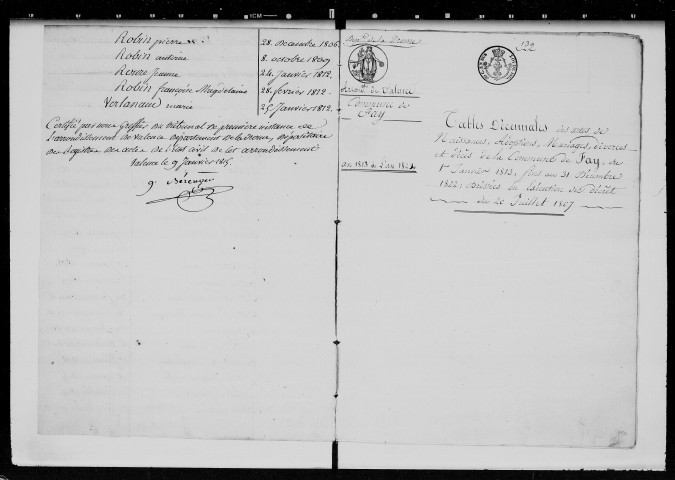 Robin pierre
28. decembre 1806.
Robin antoine
8. octobre 1809
Rouze jeanne
24 janvier 1812.
Robin françoise Magdelaine
28. fevrier 1812.
Verlandue marie
25 janvier 1812.
Certifié par nous Greffier du tribunal de première instance de
l'arrondissement de valence departement de la drome, depositaire
des registres des actes de l'etat civil de cet arrondissement
Valence le 9 Janvier 1815.
Bérenger
Dépt. de la Drome
Arrondt. de Valence
Commune de
Fay
an 1813 à l'an 1822
122
Tables Décennales des actes de
Naissances, Adoptions, Mariages, divorces
et décès de la Commune de Fay, du
1er Janvier 1813, jusqu'au 31 Décembre
1822, dressées en exécution du Décret
du 20 Juillet 1807